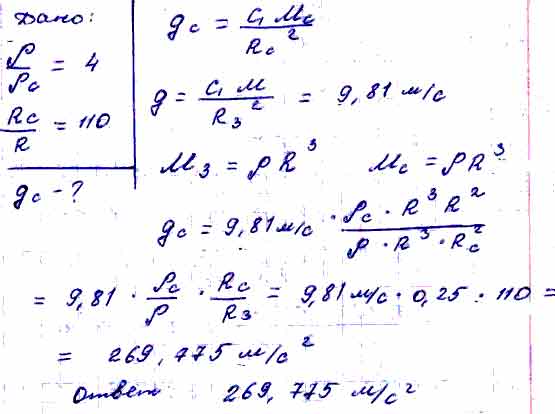 Дано:
ρ/ρс = 4
Rс/R = 110
gс - ?
gс = G Mс / Rс²
g = G M / R₃² = 9,81 м/с
M₃ = ρ R³ Mс = ρ R³
gс = 9,81 м/с · ρс · R³ R² / ρ · R³ · Rс²
= 9,81 · ρс/ρ · Rс/R₃ = 9,81 м/с · 0,25 · 110 =
= 269,775 м/с²
Ответ 269,775 м/с²